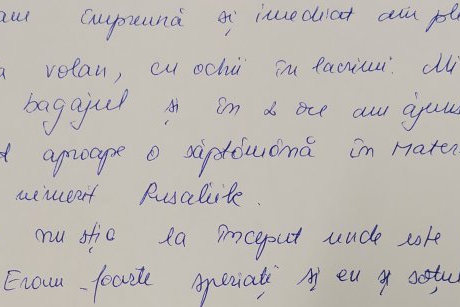 am împreună și imediat am ple
a volan, cu ochii în lacrimi. Mi
bagajul și în 2 ore am ajuns
aproape o săptămână în Mater
nimerit Rusaliile.
nu știa la început unde este
Eram foarte speriați și eu și soțu